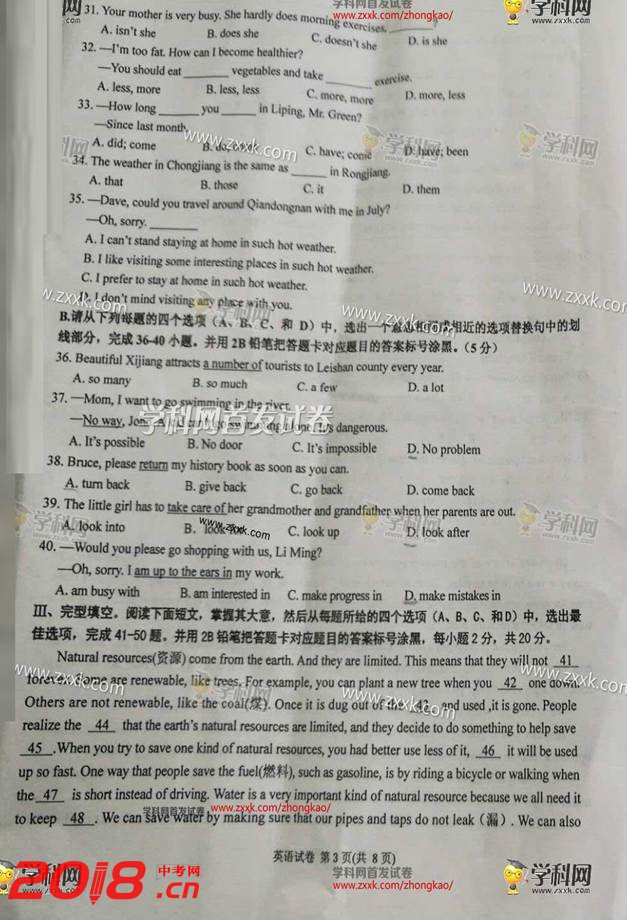 31. Your mother is very busy. She hardly does morning exercises,
A. isn't she B. does she C. doesn't she D. is she
32. —I'm too fat. How can I become healthier?
—You should eat ________ vegetables and take ________ exercise.
A. less, more B. less, less C. more, more D. more, less
33. —How long ________ you ________ in Liping, Mr. Green?
—Since last month.
A. did; come B. C. have; come D. have; been
34. The weather in Chongjiang is the same as ______ in Rongjiang.
A. that B. those C. it D. them
35. —Dave, could you travel around Qiandongnan with me in July?
—Oh, sorry. ________
A. I can't stand staying at home in such hot weather.
B. I like visiting some interesting places in such hot weather.
C. I prefer to stay at home in such hot weather.
D. I don't mind visiting any place with you.
B.请从下列每题的四个选项（A、B、C、和 D）中，选出一个意思相近的选项替换句中的划
线部分，完成 36-40 小题。并用 2B 铅笔把答题卡对应题目的答案标号涂黑。（5 分）
36. Beautiful Xijiang attracts a number of tourists to Leishan county every year.
A. so many B. so much C. a few D. a lot
37. —Mom, I want to go swimming in the river.
—No way, dangerous.
A. It's possible B. No door C. It's impossible D. No problem
38. Bruce, please return my history book as soon as you can.
A. turn back B. give back C. go back D. come back
39. The little girl has to take care of her grandmother and grandfather when her parents are out.
A. look into B. look C. look up D. look after
40. —Would you please go shopping with us, Li Ming?
—Oh, sorry. I am up to the ears in my work.
A. am busy with B. am interested in C. make progress in D. make mistakes in
III、完型填空。阅读下面短文，掌握其大意，然后从每题所给的四个选项（A、B、C、和 D）中，选出最
佳选项，完成 41-50 题。并用 2B 铅笔把答题卡对应题目的答案标号涂黑，每小题 2 分，共 20 分。
Natural resources(资源) come from the earth. And they are limited. This means that they will not 41
forever. Some are renewable, like trees. For example, you can plant a new tree when you 42 one down.
Others are not renewable, like the coal(煤). Once it is dug out of the 43 and used ,it is gone. People
realize the 44 that the earth's natural resources are limited, and they decide to do something to help save
45 .When you try to save one kind of natural resources, you had better use less of it, 46 it will be used
up so fast. One way that people save the fuel(燃料), such as gasoline, is by riding a bicycle or walking when
the 47 is short instead of driving. Water is a very important kind of natural resource because we all need it
to keep 48 . We can save water by making sure that our pipes and taps do not leak（漏）. We can also
英语试卷 第 3 页(共 8 页)
学科网首发试卷
www.zxxk.com/zhongkao/
学科网
www.zxxk.com
2018 中考网 .cn